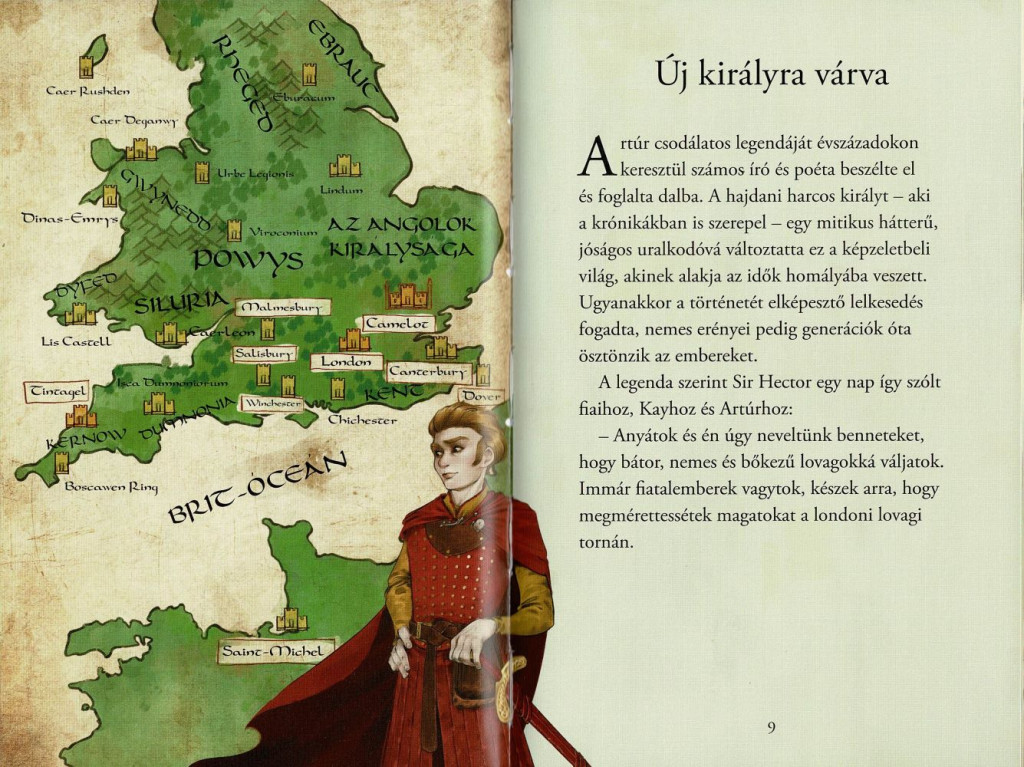 EBRAUC
RHEGED
Caer Rushden
Eburacum
Caer Deganwy
Urbe Legionis
Lindum
GWYNEDD
Dinas-Emrys
Viroconium
AZ ANGOLOK
KIRÁLYSÁGA
POWYS
DYFED
SILURIA
Malmesbury
Camelot
Caerleon
Lis Castell
Salisbury
London
Canterbury
Tintagel
Isca Dumnoniorum
KENT
Dover
Winchester
DUMNONIA
Chichester
KERNOW
Boscawen Ring
BRIT-ÓCEÁN
Saint-Michel
Új királyra várva
Artúr csodálatos legendáját évszázadokon
keresztül számos író és poéta beszélte el
és foglalta dalba. A hajdani harcos királyt – aki
a krónikákban is szerepel – egy mitikus hátterű,
jóságos uralkodóvá változtatta ez a képzeletbeli
világ, akinek alakja az idők homályába veszett.
Ugyanakkor a történetét elképesztő lelkesedés
fogadta, nemes erényei pedig generációk óta
ösztönzik az embereket.
A legenda szerint Sir Hector egy nap így szólt
fiaihoz, Kayhoz és Artúrhoz:
– Anyátok és én úgy neveltünk benneteket,
hogy bátor, nemes és bőkezű lovagokká váljatok.
Immár fiatalemberek vagytok, készek arra, hogy
megmérettessétek magatokat a londoni lovagi
tornán.
9